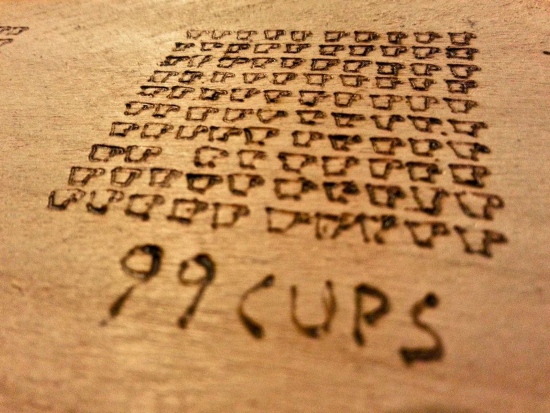 99 CUPS